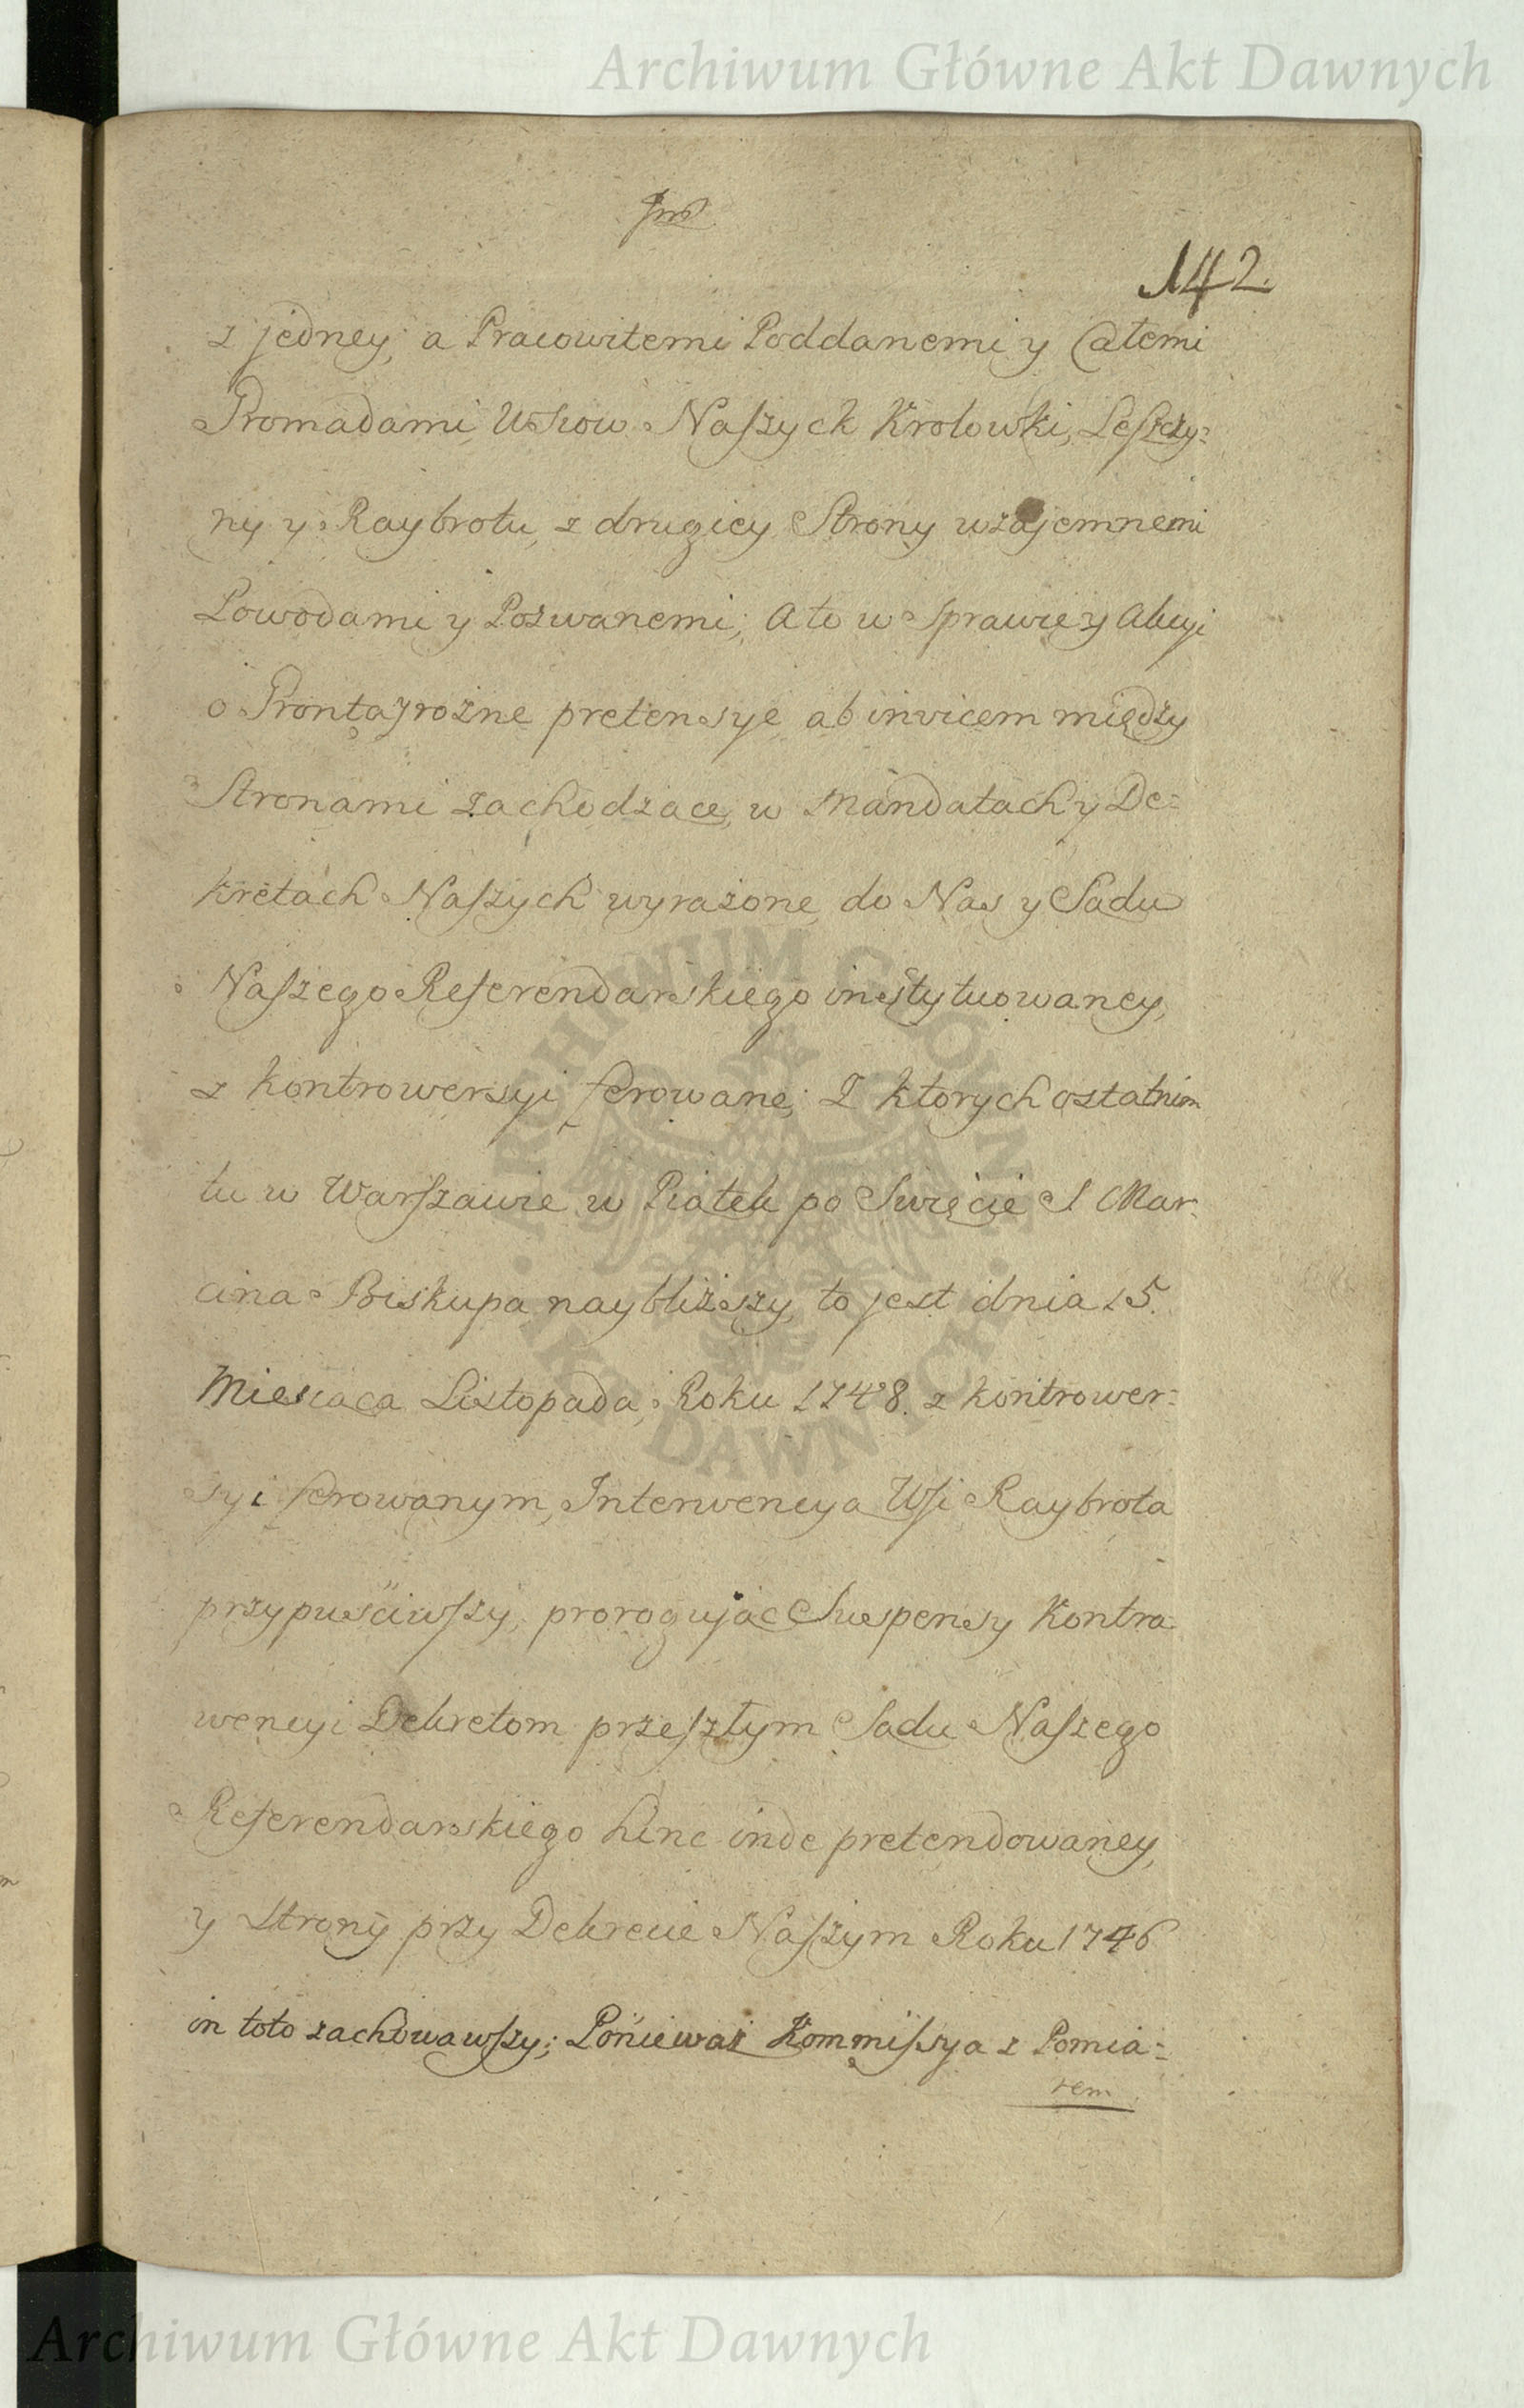 Archiwum Główne Akt Dawnych
142.
z jedney, a Pracowitemi Poddanemi y Całemi
Gromadami Wsiow Naszych Krolowki, Leszczy=
ny y Raybrotu, z drugiey Strony wzajemnemi
Powodami y Pozwanemi; A to w Sprawie y Akcyi
o Gronta y rożne pretensye ab invicem między
Stronami zachodzące, w Mandatach y De=
kretach Naszych wyrażone, do Nas y Sądu
Naszego Referendarskiego instytuowaney,
z kontrowersyi ferowane; Z ktorych ostatnim
tu w Warszawie w Piątek po Swięcie S Mar=
cina Biskupa naybliższy, to jest dnia 15.
Miesiąca Listopada, Roku 1748. z kontrower=
syi ferowanym, Interwencyą Wsi Raybrota
przypuściwszy, prorogując Suspensy Kontra
wencyi Dekretom przeszłym Sądu Naszego
Referendarskiego hinc inde pretendowaney,
y Strony przy Dekrecie Naszym Roku 1746
in toto zachowawszy; Ponieważ Kommissya z Pomia=
rem
ARCHIWUM GŁÓWNE AKT DAWNYCH
Archiwum Główne Akt Dawnych